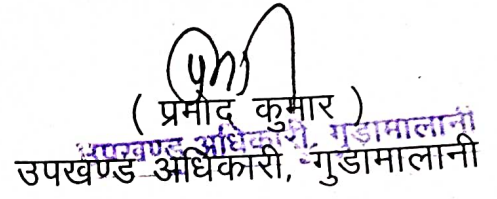 ( प्रमोद कुमार )
उपखण्ड अधिकारी, गुडामालानी
उपखण्ड अधिकारी, गुडामालानी